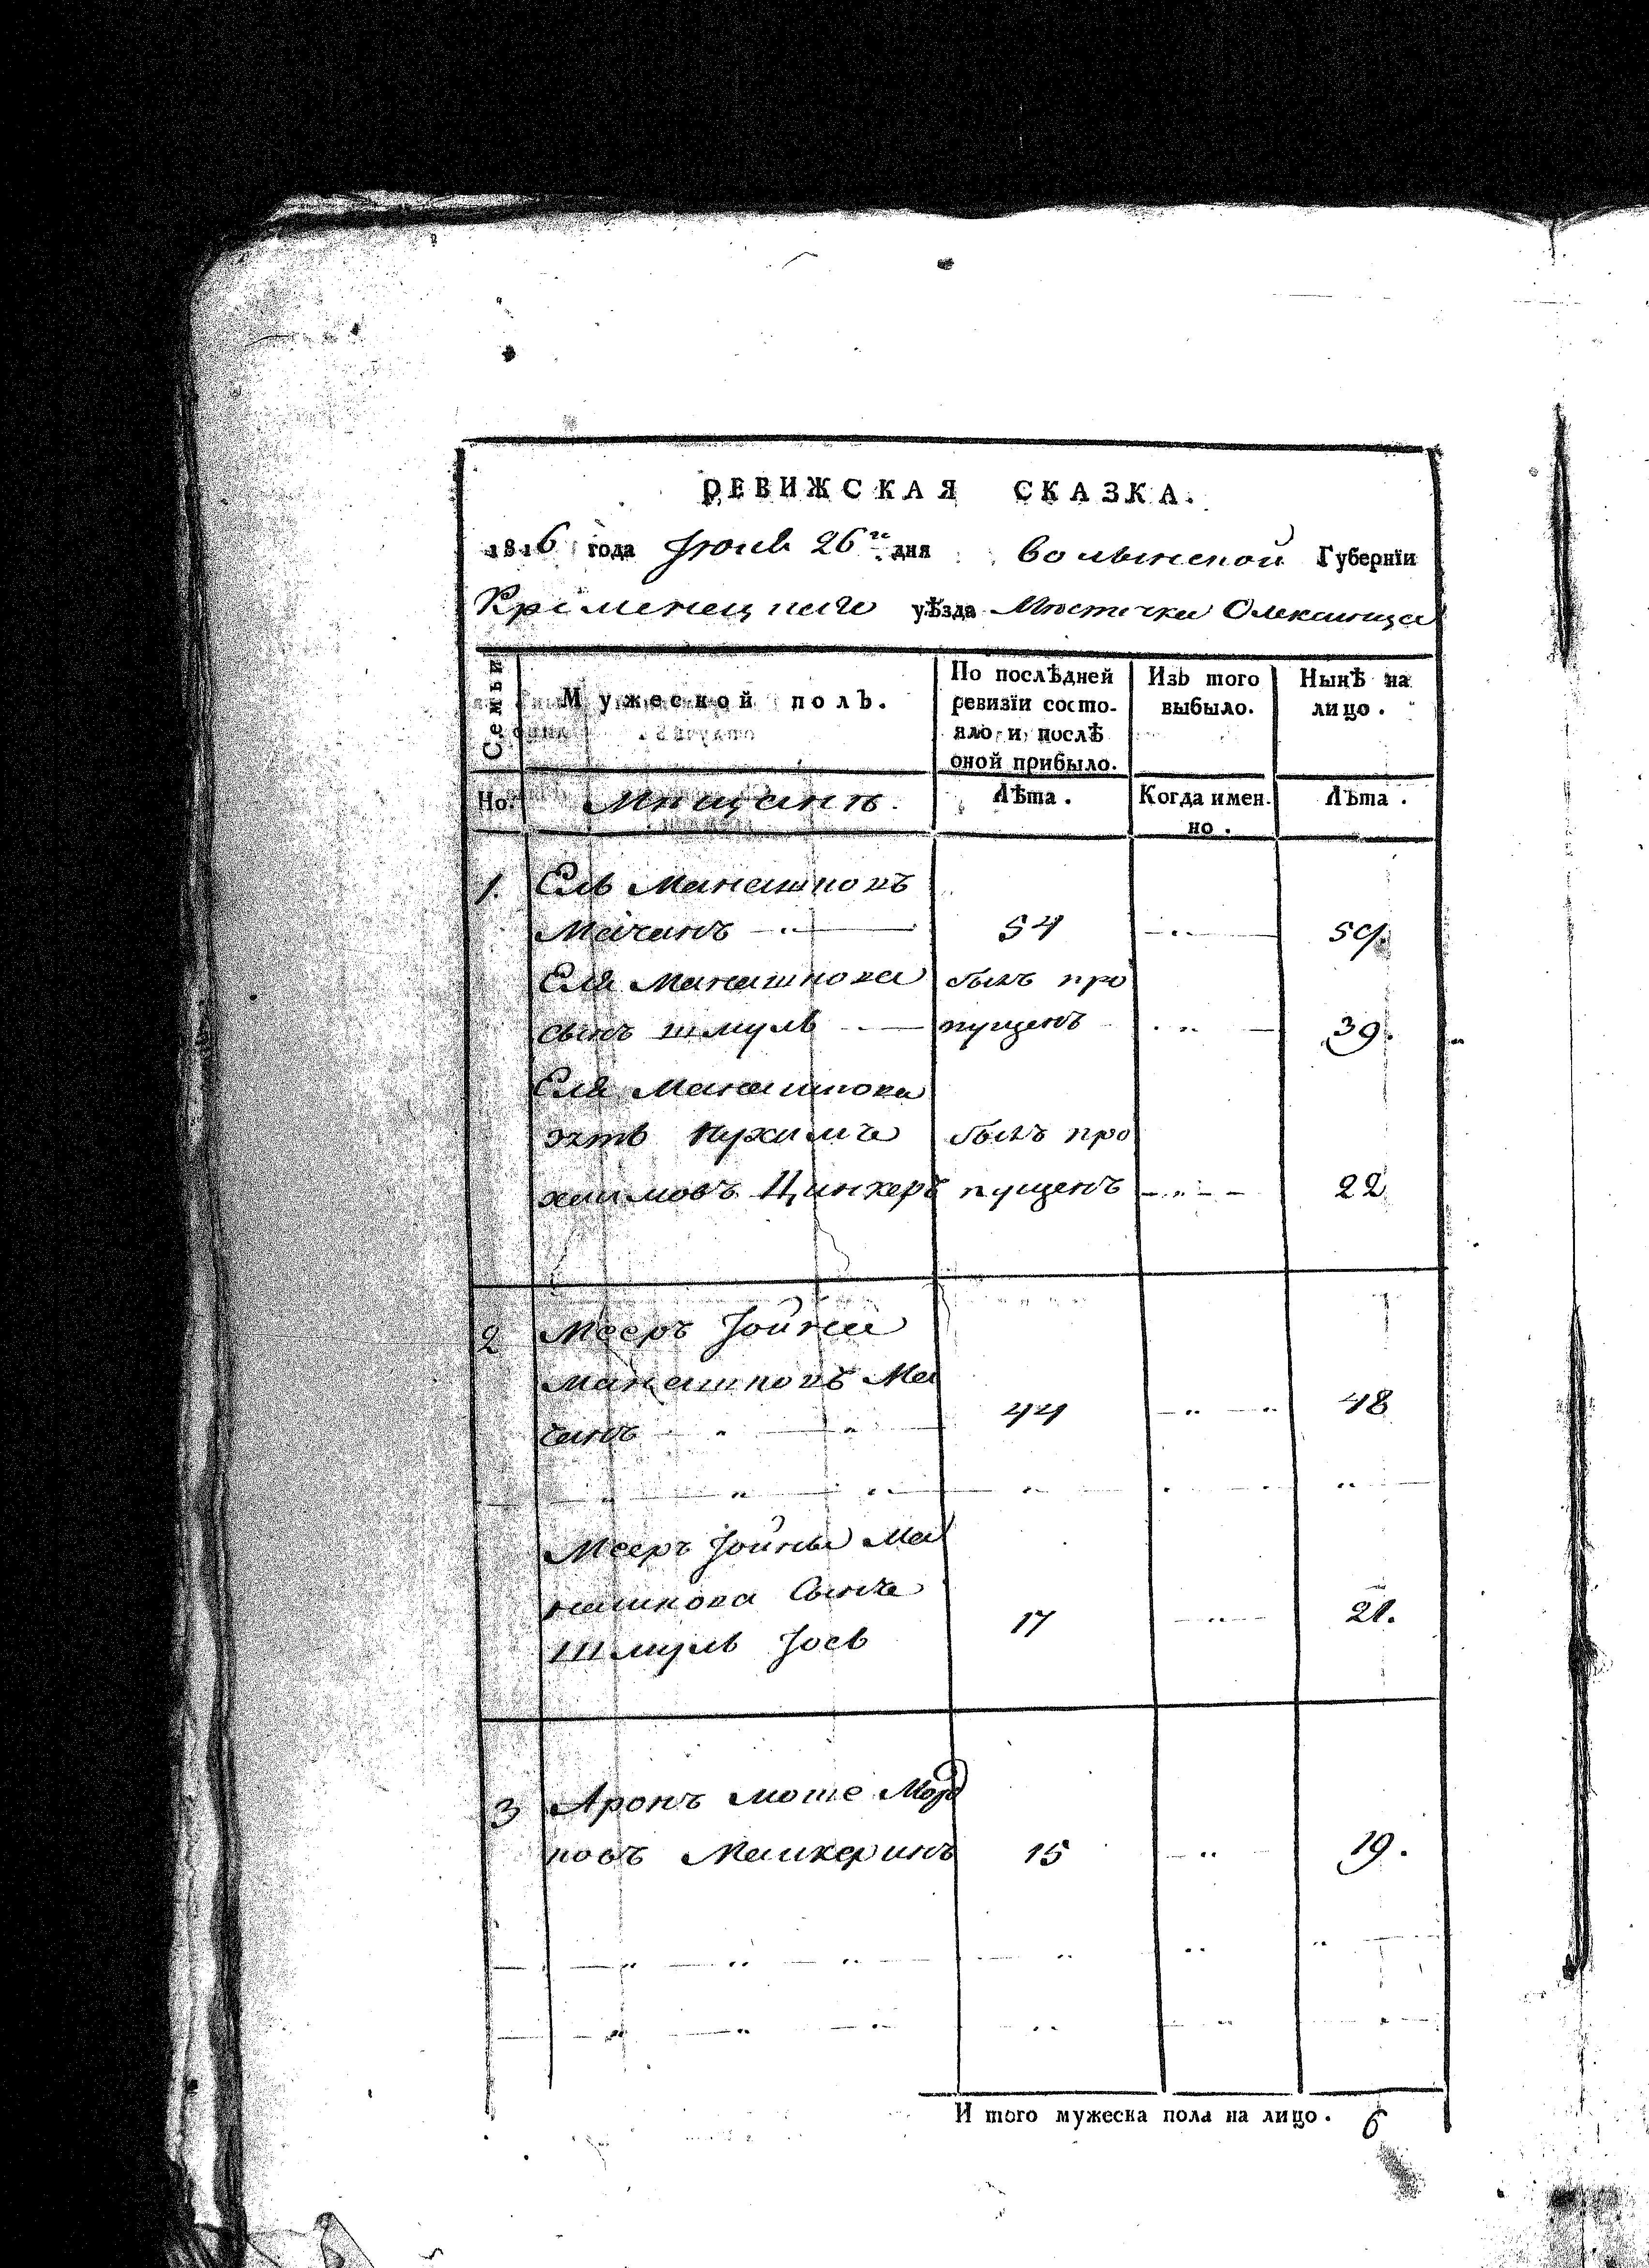 РЕВИЖСКАЯ СКАЗКА.
1816 года Іюня 26го дня Волынской Губернїи
Кременецкаго уѣзда Мѣстечка Олексинца
Семьи
Мужеской полъ.
По послѣдней ревизїи состояло и послѣ оной прибыло.
Изъ того выбыло.
Нынѣ на лицо.
Но.
Мѣщанѣ.
Лѣта.
Когда имен.но.
Лѣта.
1. Ель Манашковъ
Мачанъ 54 59.
Еля Манашкова былъ про
сынъ Шмуль пущенъ 39.
Еля Манашкова
зять Нухимъ былъ про
хаимовъ Цинкеръ пущенъ 22
2 Мееръ Іойна
Манашковъ Ма
чанъ 44 48
Мееръ Іойны Ма
нашкова Сынъ
Шмуль Іось 17 21.
3 Аронъ Моше Мор
ковъ 15 19.
И того мужеска пола на лицо. 6